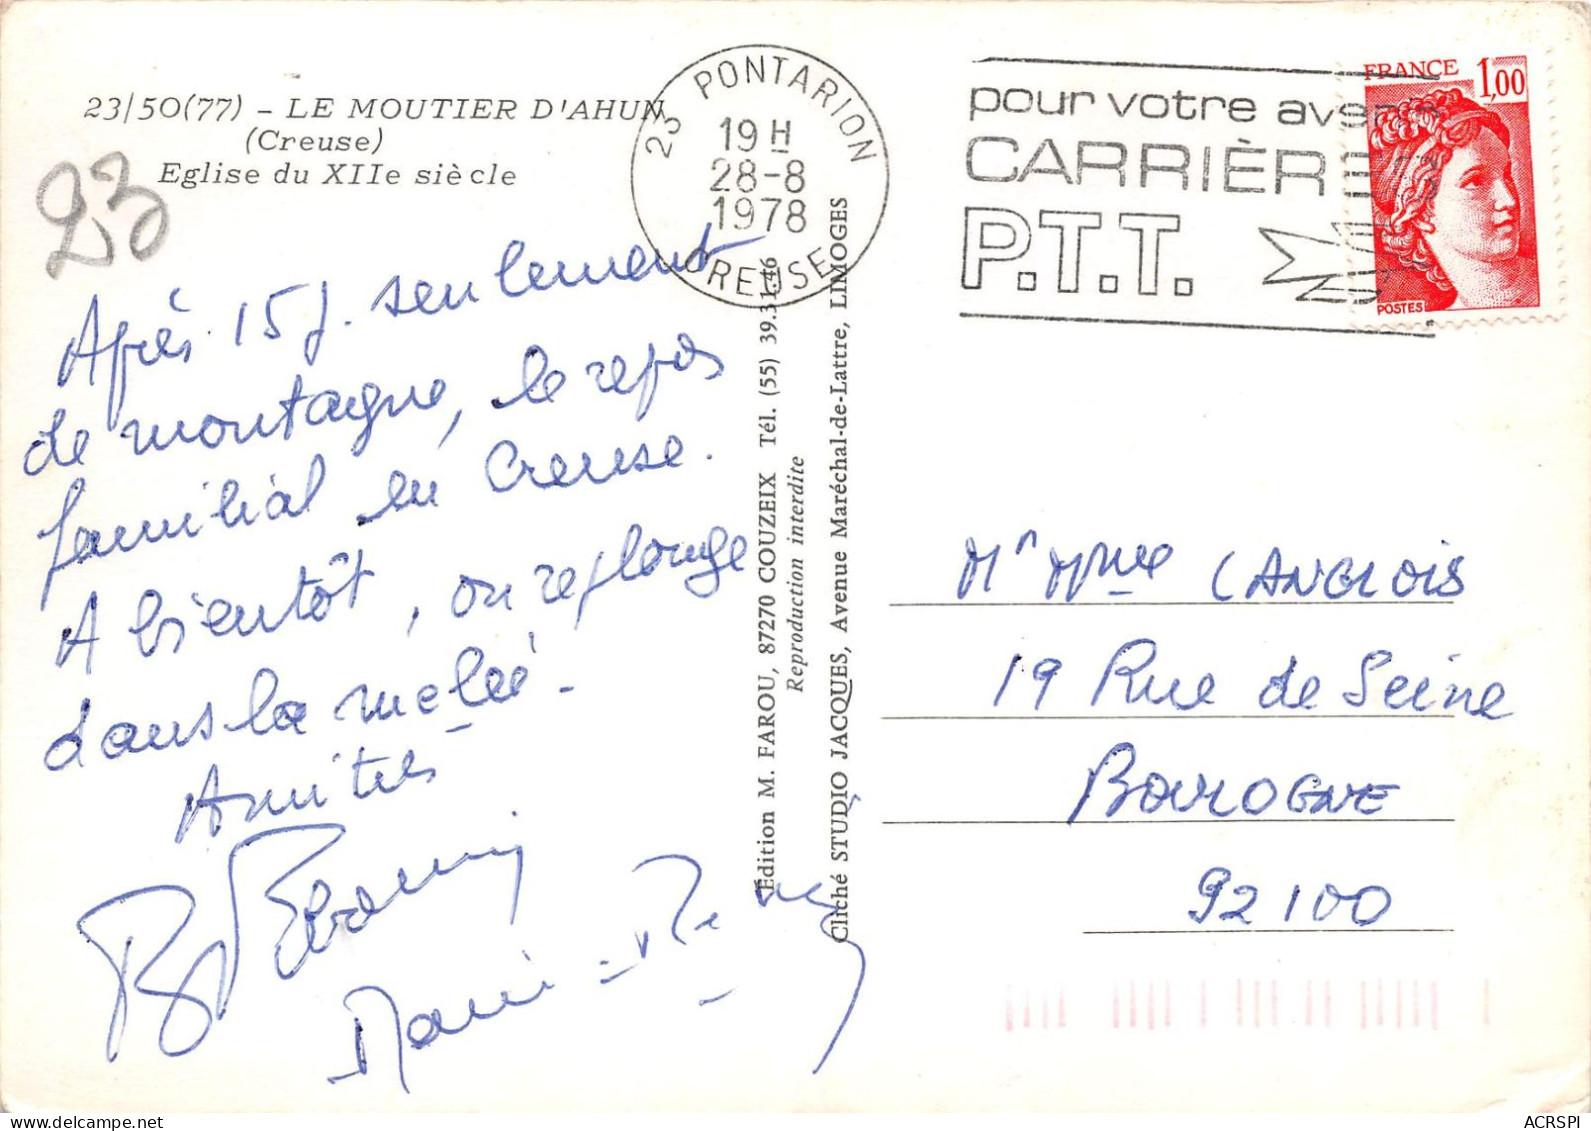 23/50(77) - LE MOUTIER D'AHUN
(Creuse)
Eglise du XIIe siècle
23
23 PONTARION
19 H
28-8
1978
CREUSE
pour votre aven
CARRIÈRE
P.T.T.
FRANCE 1,00
POSTES
Après 15 j. seulement
de montagne, le repos
familial en Creuse.
A bientôt, on replonge
dans la mêlée.
Amitiés
Marie-
Edition M. FAROU, 87270 COUZEIX Tél. (55) 39.31.46
Reproduction interdite
Cliché STUDIO JACQUES, Avenue Maréchal-de-Lattre, LIMOGES
Mr Mme LANGLOIS
19 Rue de Seine
BOULOGNE
92100
ACRSPI